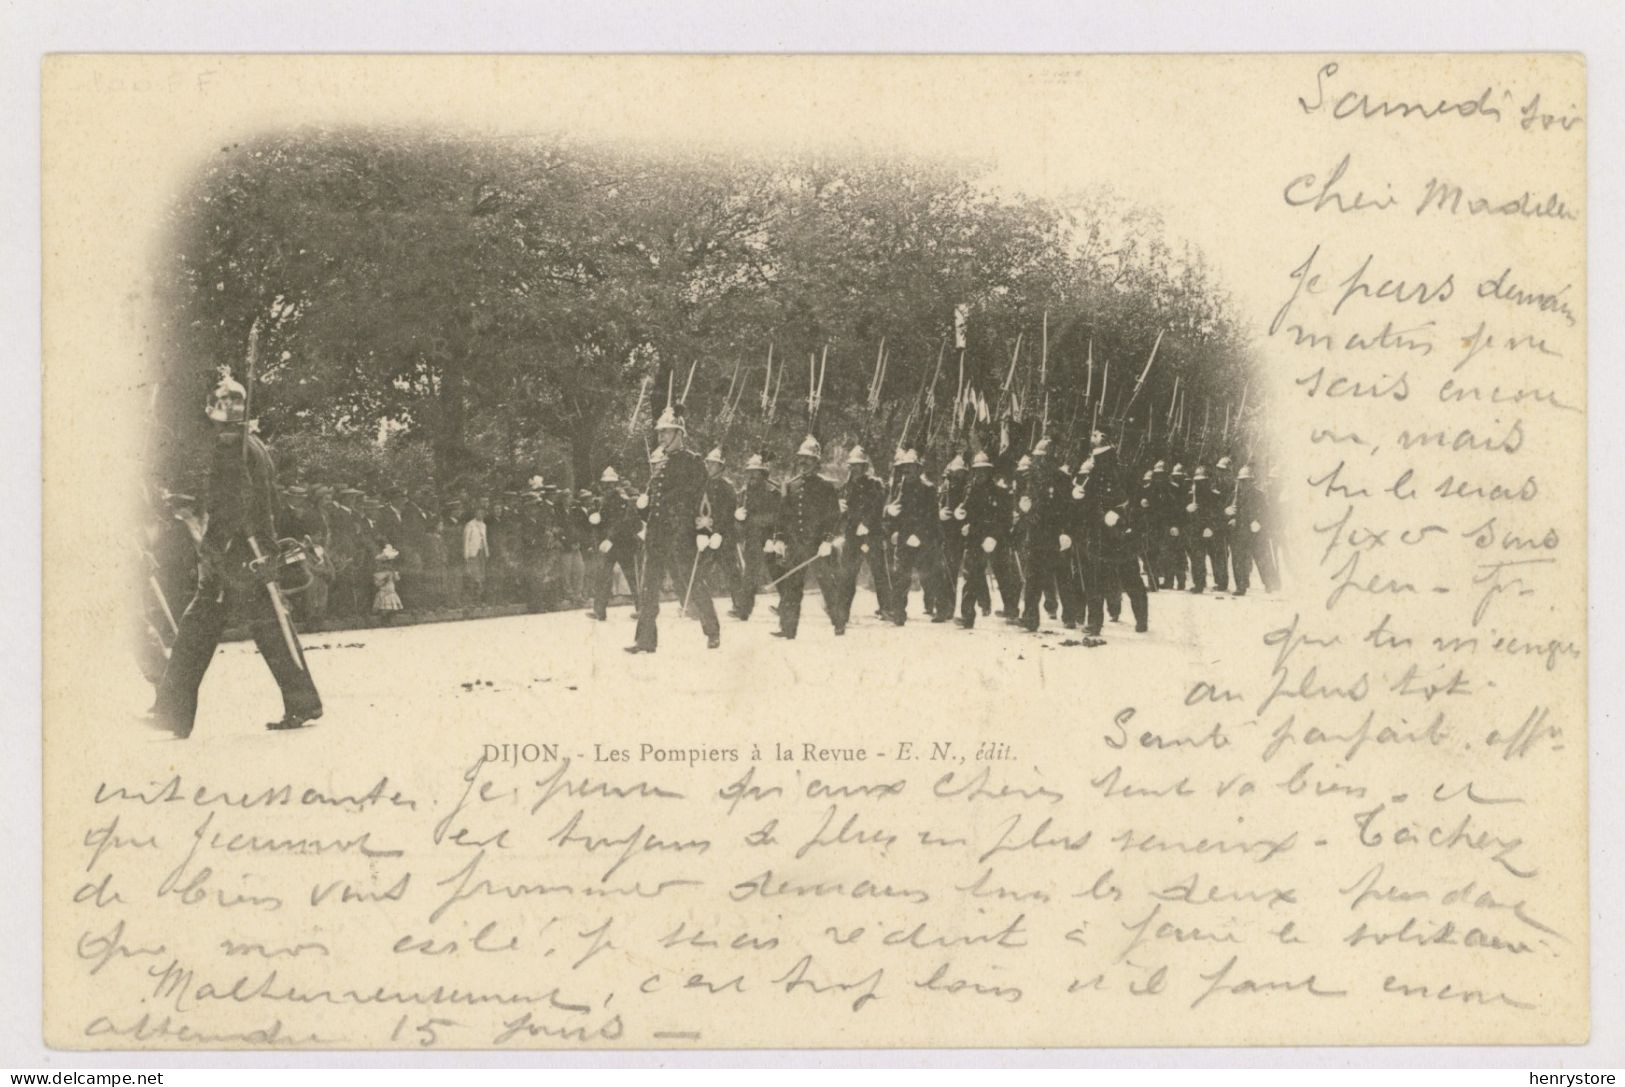 Samedi soir
Cher Madeleine
Je pars demain
matin je ne
sais encore
ou, mais
tu le seras
fixer sous
peu -
que tu m'
au plus tôt.
Santé parfait.
DIJON. - Les Pompiers à la Revue - E. N., édit.
interessantes. Je pense qu'aux chères tout va bien. et
que Jeannot est toujours de plus en plus sérieux - Tâchez
de bien vous promener demain tous les deux pendant
que moi exilé, je serais réduit à faire le solitaire.
Malheureusement, c'est trop loin et il faut encore
attendre 15 jours -
henrystore
delcampe.net